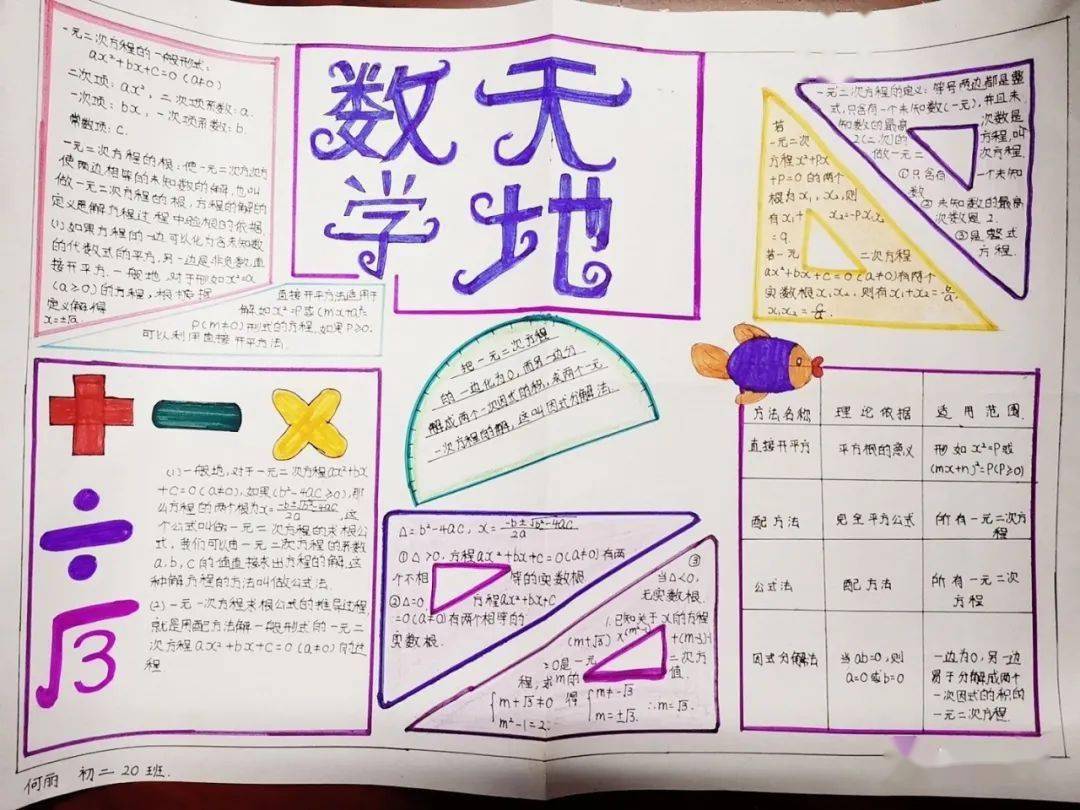 数学
天地
一元二次方程的一般形式:
ax²+bx+c=0(a≠0)
二次项:ax²,二次项系数:a.
一次项:bx,一次项系数:b.
常数项:c.
一元二次方程的根:使一元二次方次方
使两边相等的未知数的解,也叫
做一元二次方程的根,方程的解的
定义是解方程过程中验根的依据
(1)如果方程的一边可以化为含未知数
的代数式的平方,另一边是非负数,直
接开平方.一般地,对于形如x²=a
(a≥0)的方程,根据
定义解得
x=±√a
直接开平方法适用于
解如x²=P或(mx+n)²=
P(m≠0)形式的方程,如果P≥0.
可以利用直接开平方法.
一元二次方程的定义:等号两边都是整
式,只含有一个未知数(一元),并且未
知数的最高次数是
2(二次)的方程,叫
做一元二次方程.
①只含有一个未知
数
②未知数的最高
次数是2.
③是整式
方程.
若
一元二次
方程x²+Px
+P=0的两个
根为x₁,x₂,则
有x₁+x₂=-P,x₁x₂
=q.
若一元二次方程
ax²+bx+c=0(a≠0)有两个
实数根x₁x₂,则有x₁+x₂=
x₁x₂=
把一元二次方程
的一边化为0,而另一边分
解成两个一次因式的积,求两个一元
一次方程的解,这叫因式分解法.
√3
(1)一般地,对于一元二次方程ax²+bx
+c=0(a≠0),如果(b²-4ac≥0),那
么方程的两个根为x=-b±√b²-4ac/2a,这
个公式叫做一元二次方程的求根公
式,我们可以由一元二次方程的系数
a,b,c的值直接求出方程的解,这
种解方程的方法叫做公式法.
(2)一元一次方程求根公式的推导过程,
就是用配方法解一般形式的一元二
次方程ax²+bx+c=0(a≠0)的过
程
Δ=b²-4ac,x=-b±√b²-4ac/2a
①Δ>0,方程ax²+bx+c=0(a≠0)有两
个不相等的实数根
②Δ=0,方程ax²+bx+c
=0(a≠0)有两个相等的
实数根.
③
当Δ<0,
无实数根.
1.已知关于x的方程
(m+√3)x(m²-1)+(m-3)-1
=0是一元二次方
程,求m的值.
{m+√3≠0 得 {m≠-√3
m²-1=2. m=±√3. ∴m=√3.
方法名称 理论依据 适用范围.
直接开平方 平方根的意义 形如x²=P或
(mx+n)²=P(P≥0)
配方法 完全平方公式 所有一元二次方
程
公式法 配方法 所有一元二次
方程
因式分解法 当ab=0,则
a=0或b=0
一边为0,另一边
易于分解成两个
一次因式的积的
一元二次方程.
何丽 初二20班.